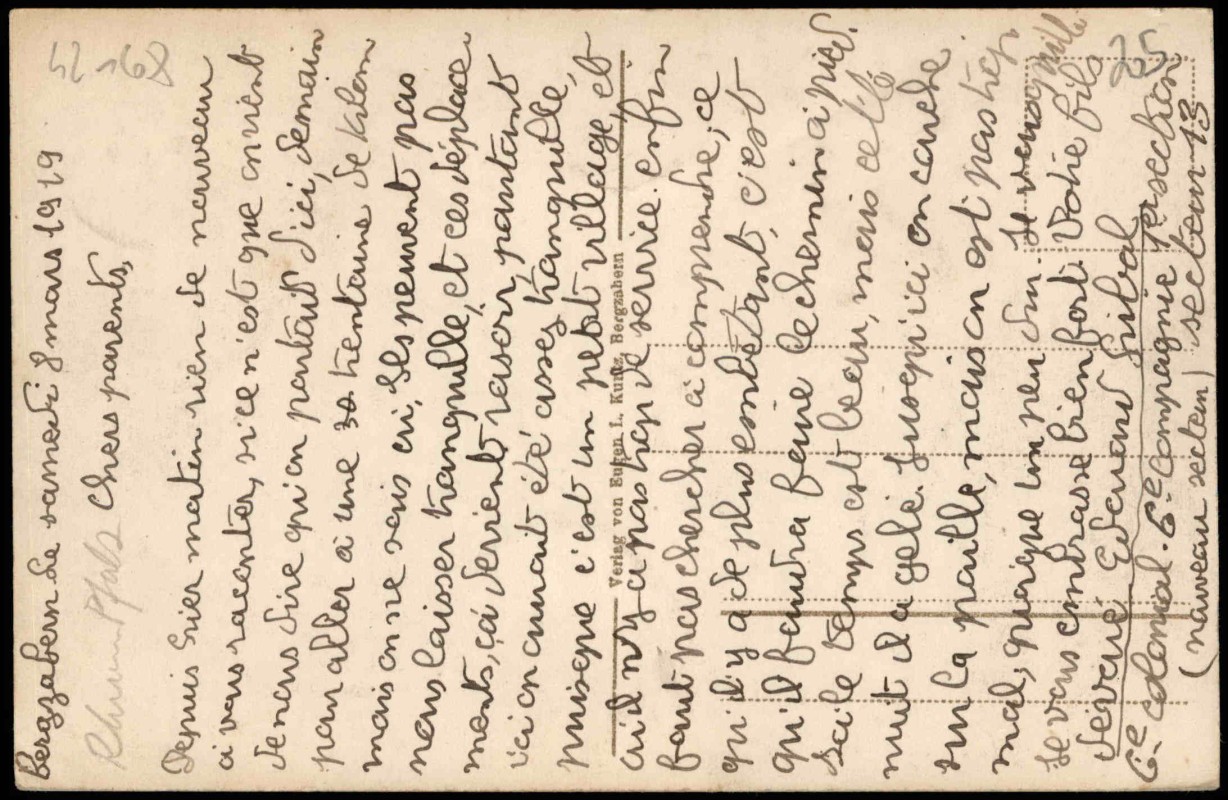 Bergzabern de samedi 8 mars 1919
Chers parents,
Depuis hier matin rien de nouveau
à vous raconter, si ce n'est que on vient
de nous dire qu'on partait d'ici, demain
pour aller à une 30 trentaine de kilom
mais on ne sais où, Ils peuvent pas
nous laisser tranquille, et ces déplace
ments, ça devient rasoir, pourtant
ici on aurait été assez tranquille,
puisque c'est un petit village, et
où il n'y a pas trop de service. enfin
faut pas chercher à comprendre, ce
qu'il y a de plus embêtant, c'est
qu'il faudra faire le chemin à pied.
Ici le temps est beau, mais cette
nuit il a gelé. Jusqu'ici on couche
sur la paille, mais on est pas trop
mal, quoique un peu dur. Je
Je vous embrasse bien fort. Votre fils
dévoué Edouard
6e Colonial. 6e Compagnie 1e section
(nouveau secteur) secteur 13
Verlag von Eugen L. Kuntz, Bergzabern
52 168
Rheinpfalz
25